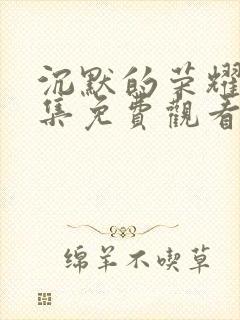 沉默的荣耀
集免費觀看
绵羊不喫草